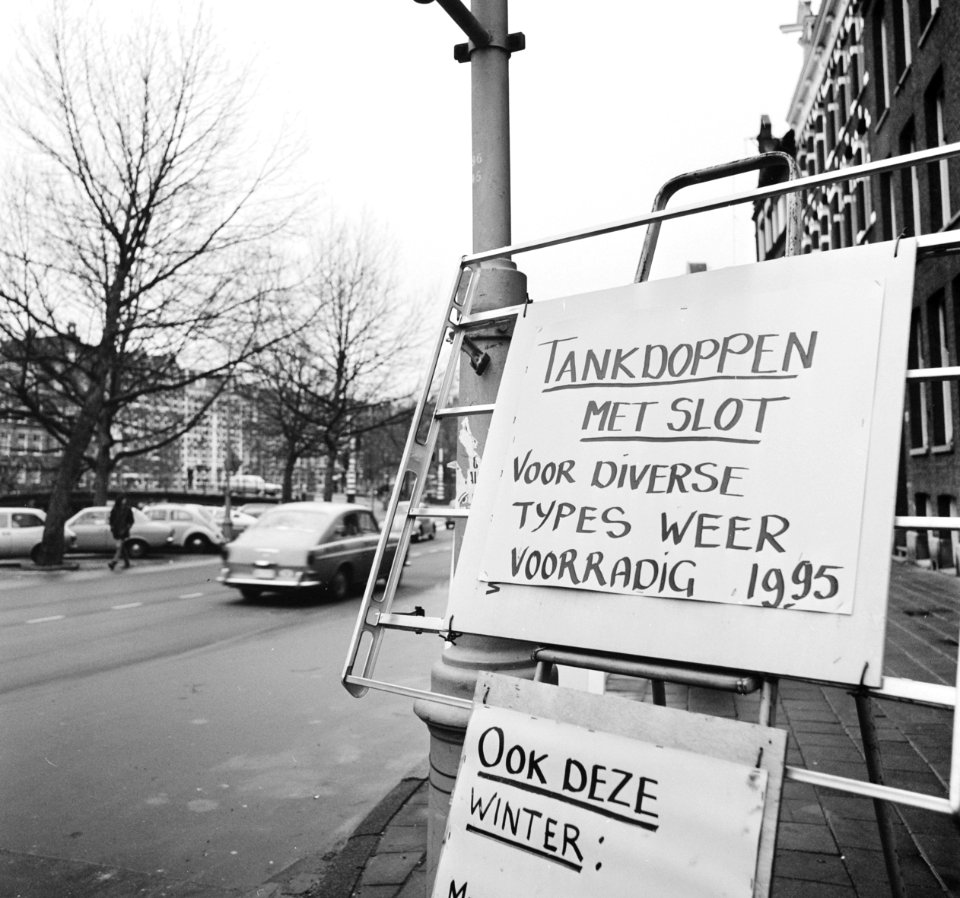 TANKDOPPEN
MET SLOT
VOOR DIVERSE
TYPES WEER
VOORRADIG 19,95
OOK DEZE
WINTER: